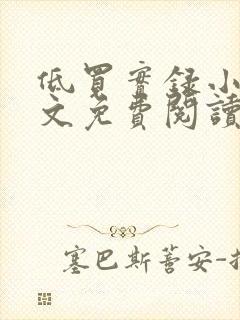 低買實錄小
文免費閱讀
塞巴斯蒂安-托